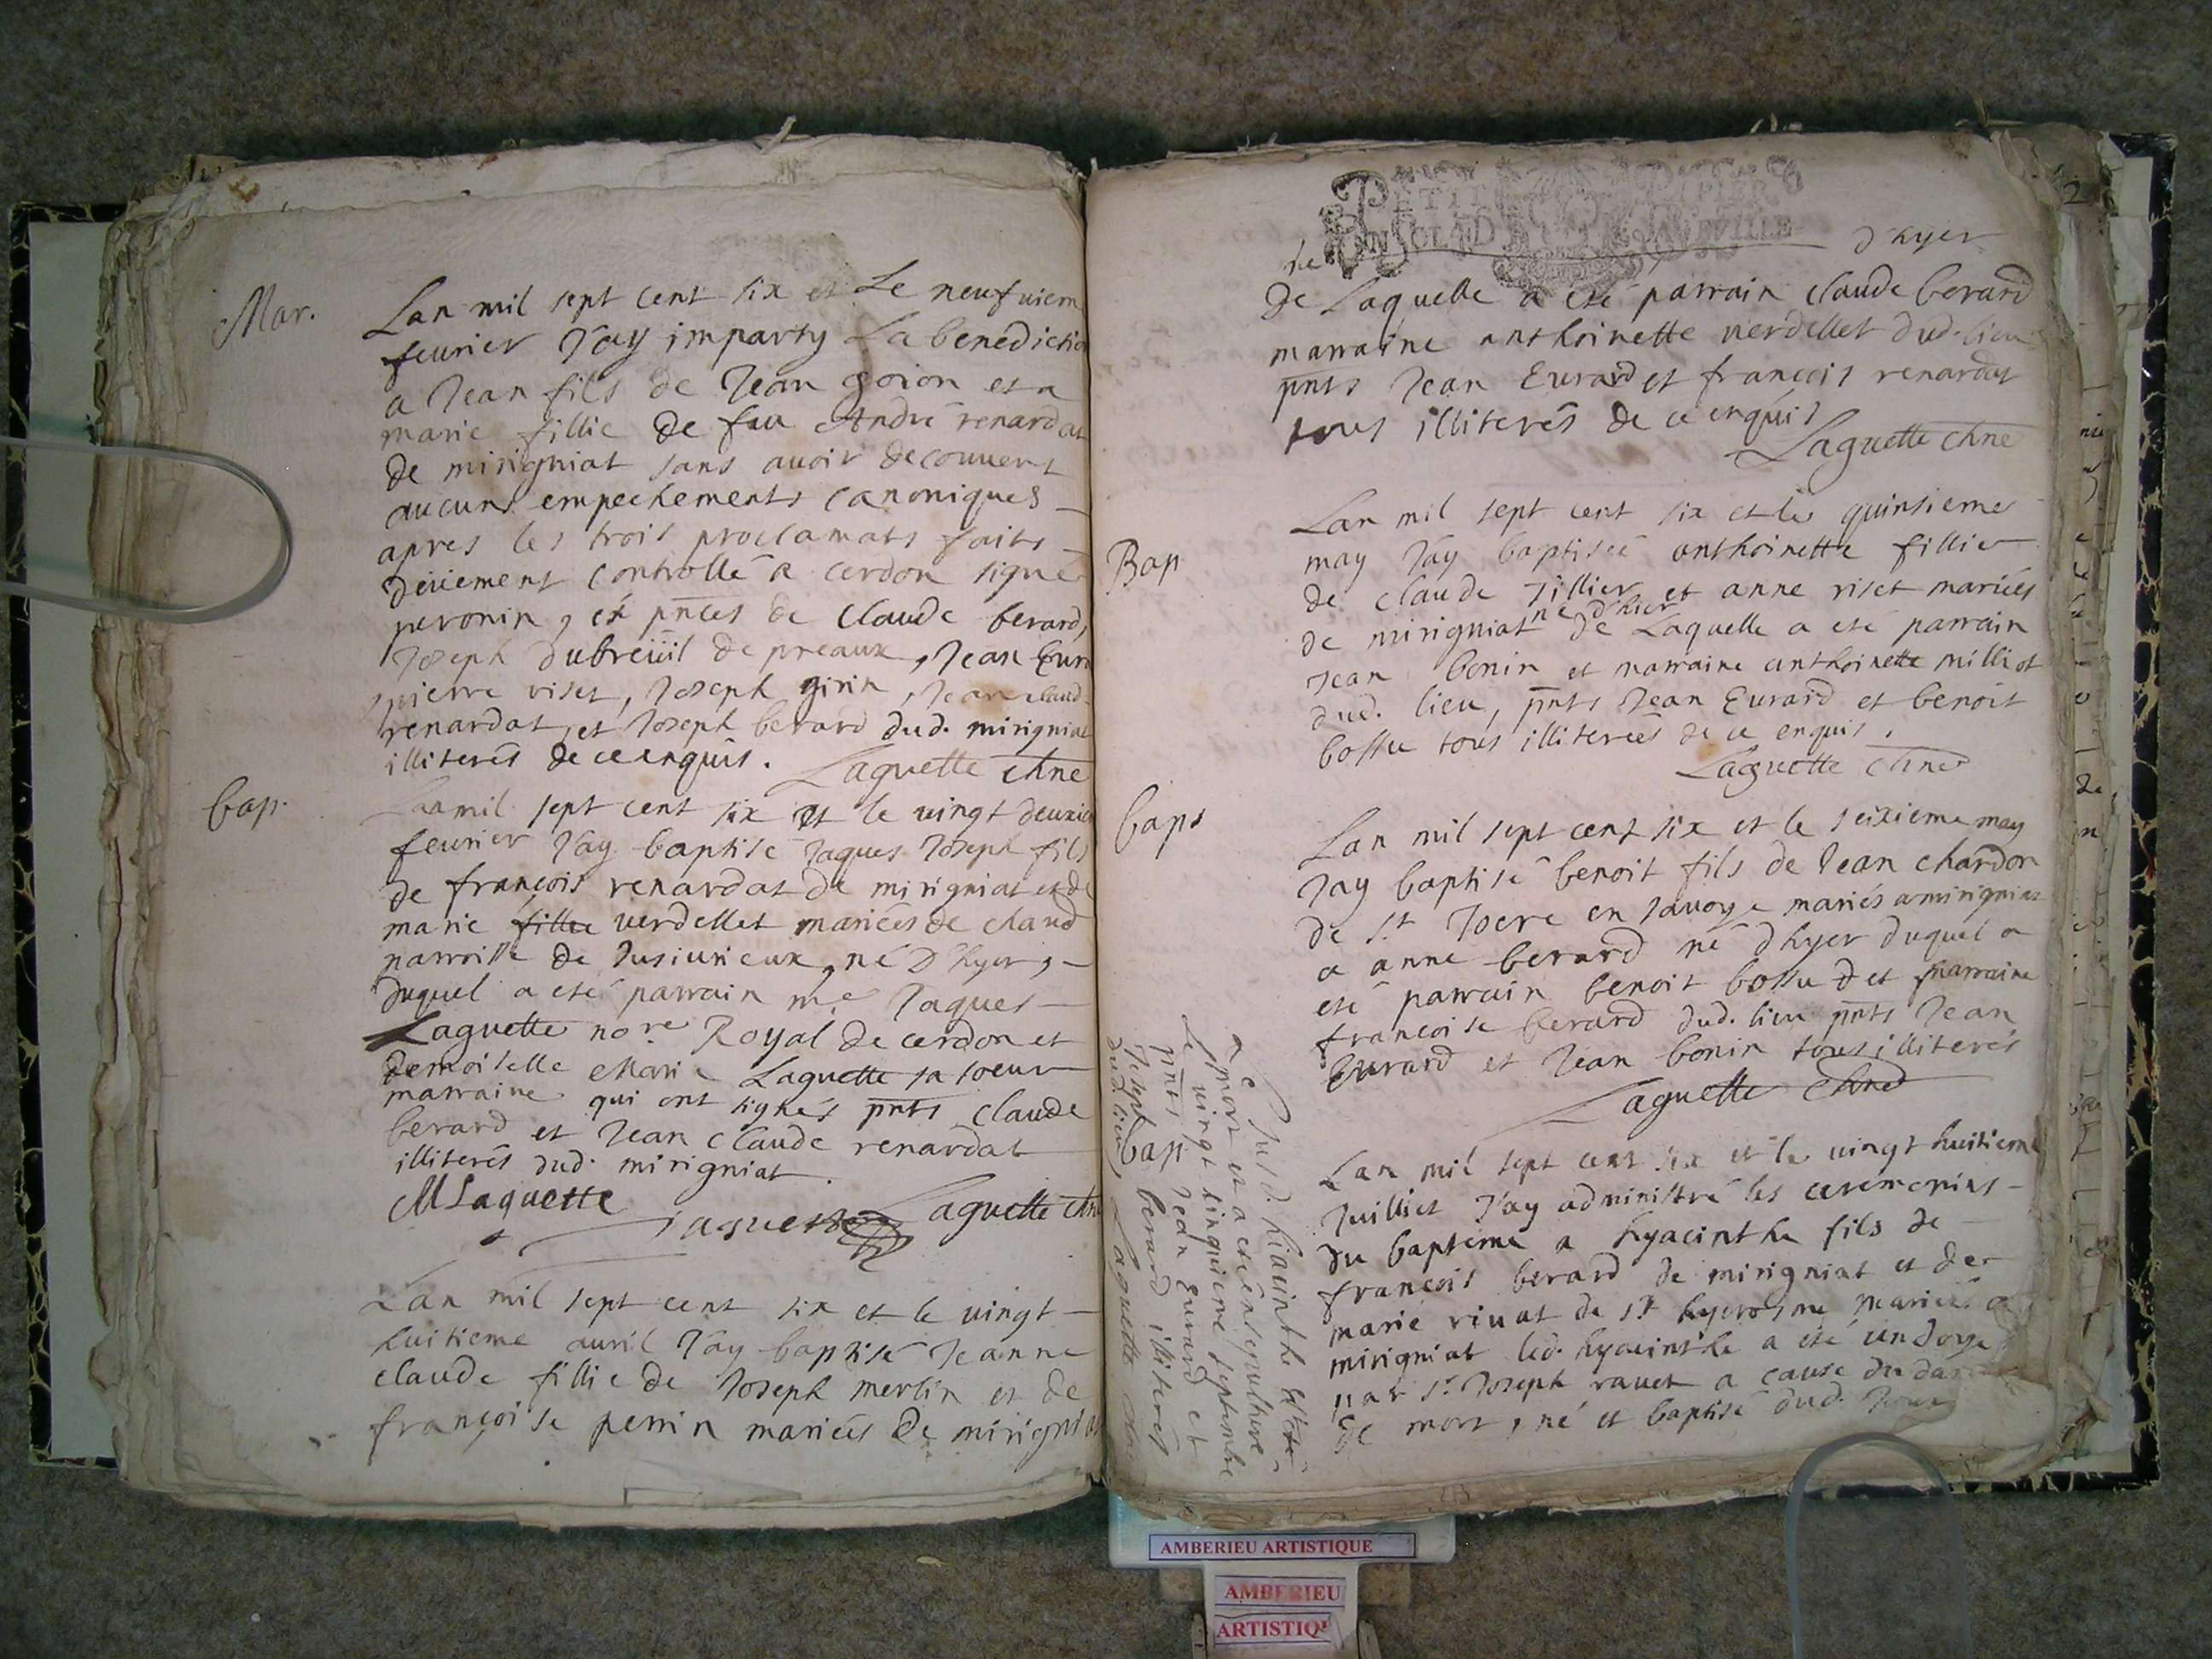 Mar.
Lan mil sept cent six et Le neufuiem
feurier J'ay imparty La benedictio
a Jean fils de Jean goion et a
marie fillie de feu André renardat
de mirigniat sans auoir decouuert
aucuns empechements canoniques
apres les trois proclamats faits
deüement controllé a cerdon signé
peronin, ex pnces de Claude berard,
Joseph dubreüil de preaux, Jean Eura
pierre riset, Joseph girin, Jean claud
renardat, et Joseph berard dud. mirigniat
illiterés de ce enquis. Laguette chne
bap.
Lan mil sept cent six et le uingt deuxie
feurier J'ay baptisé Jaques Joseph fils
de françois renardat de mirigniat et de
marie fillie verdellet mariés de chaud
parroisse de Jusiurieux, né D'hyer,
duquel a eté parrain me. Jaques
Laguette nore. Royal de cerdon et
demoiselle Marie Laguette sa soeur
marraine qui ont signés pnts claude
berard et Jean Claude renardat
illiterés dud. mirigniat.
MLaguette Laguette Laguette chn
Lan mil sept cent six et le uingt
huitieme auril J'ay baptisé Jeanne
claude fillie de Joseph merlin et de
françoise perrin mariés de mirignia
2
PETIT PAPIER
d'hyer
de Laquelle a eté parrain claude berard
marraine anthoinette verdellet dud. lieu
pnts Jean Eurard et françois renardat
tous illiterés de ce enquis
Laguette chne
Bap
Lan mil sept cent six et le quinsieme
may J'ay baptiséé anthoinette fillie
de claude Tillier et anne riset mariés
né d'hier
de mirigniat de Laquelle a eté parrain
Jean bonin et marraine anthoinette milliot
dud. lieu, pnts Jean Eurard et benoit
bossu tous illiterés de ce enquis.
Laguette chne
baps
Lan mil sept cent six et le seixieme may
J'ay baptisé benoit fils de Jean chardon
de St Joere en sauoye mariés a mirigniat
a anne berard né d'hyer duquel a
eté parrain benoit bossu et marraine
francoise berard dud. lieu pnts Jean
Eurard et Jean bonin tous illiterés
Laguette chne
bap
Lan mil sept cent six et le uingt huitieme
Juilliet J'ay administré les ceremonies
du baptéme a hyacinthe fils de
françois berard de mirigniat et de
marie riuat de St hyerosme mariés a
mirigniat led. hyacinthe a eté undoyé
par Sr. Joseph rauet a cause du
de mort, né et baptisé dud. Jour
Le susd. hiacinthe
mort et a eté ensepulturé
Le uingt sinquieme septembre
pnts Jean Eurard et
Joseph berard illiterés
dud. lieu, Laguette chne
AMBERIEU ARTISTIQUE
AMBERIEU
ARTISTIQU